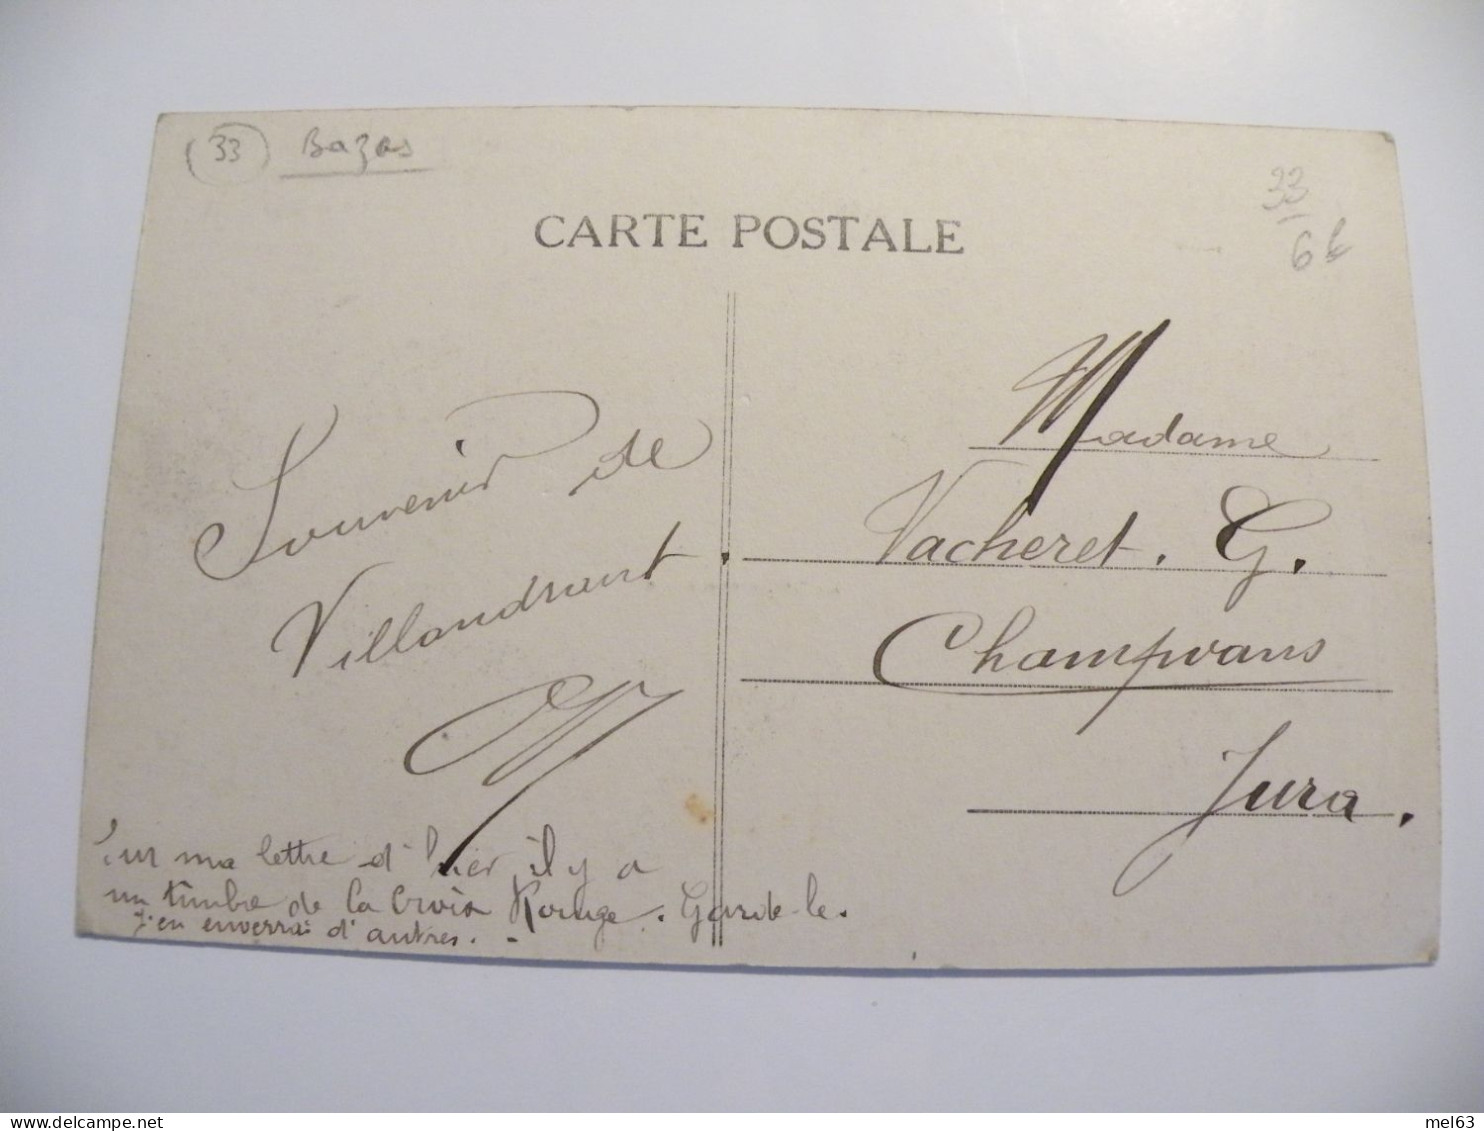 (33) Bazas
33
6€
CARTE POSTALE
Souvenir de
Villandraut
Sur ma lettre d'hier, il y a
un timbre de la Croix Rouge. Garde-le.
J'en enverrai d'autres. -
Madame
Vacheret. G.
Champvans
Jura.
delcampe.net
mel63